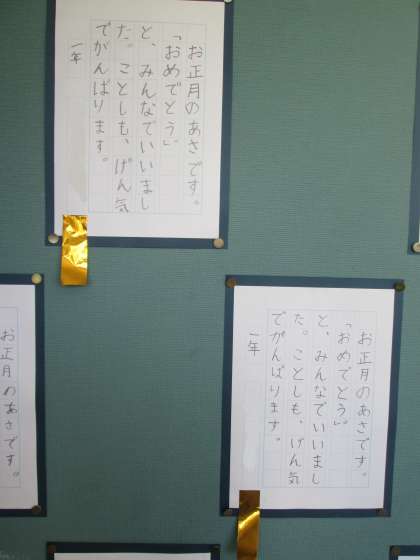 お正月のあさです。
「おめでとう」
と、みんなでいいまし
た。ことしも、げん気
でがんばります。
一年
お正月のあさです。
「おめでとう」
と、みんなでいいまし
た。ことしも、げん気
でがんばります。
一年
お正月のあさです。